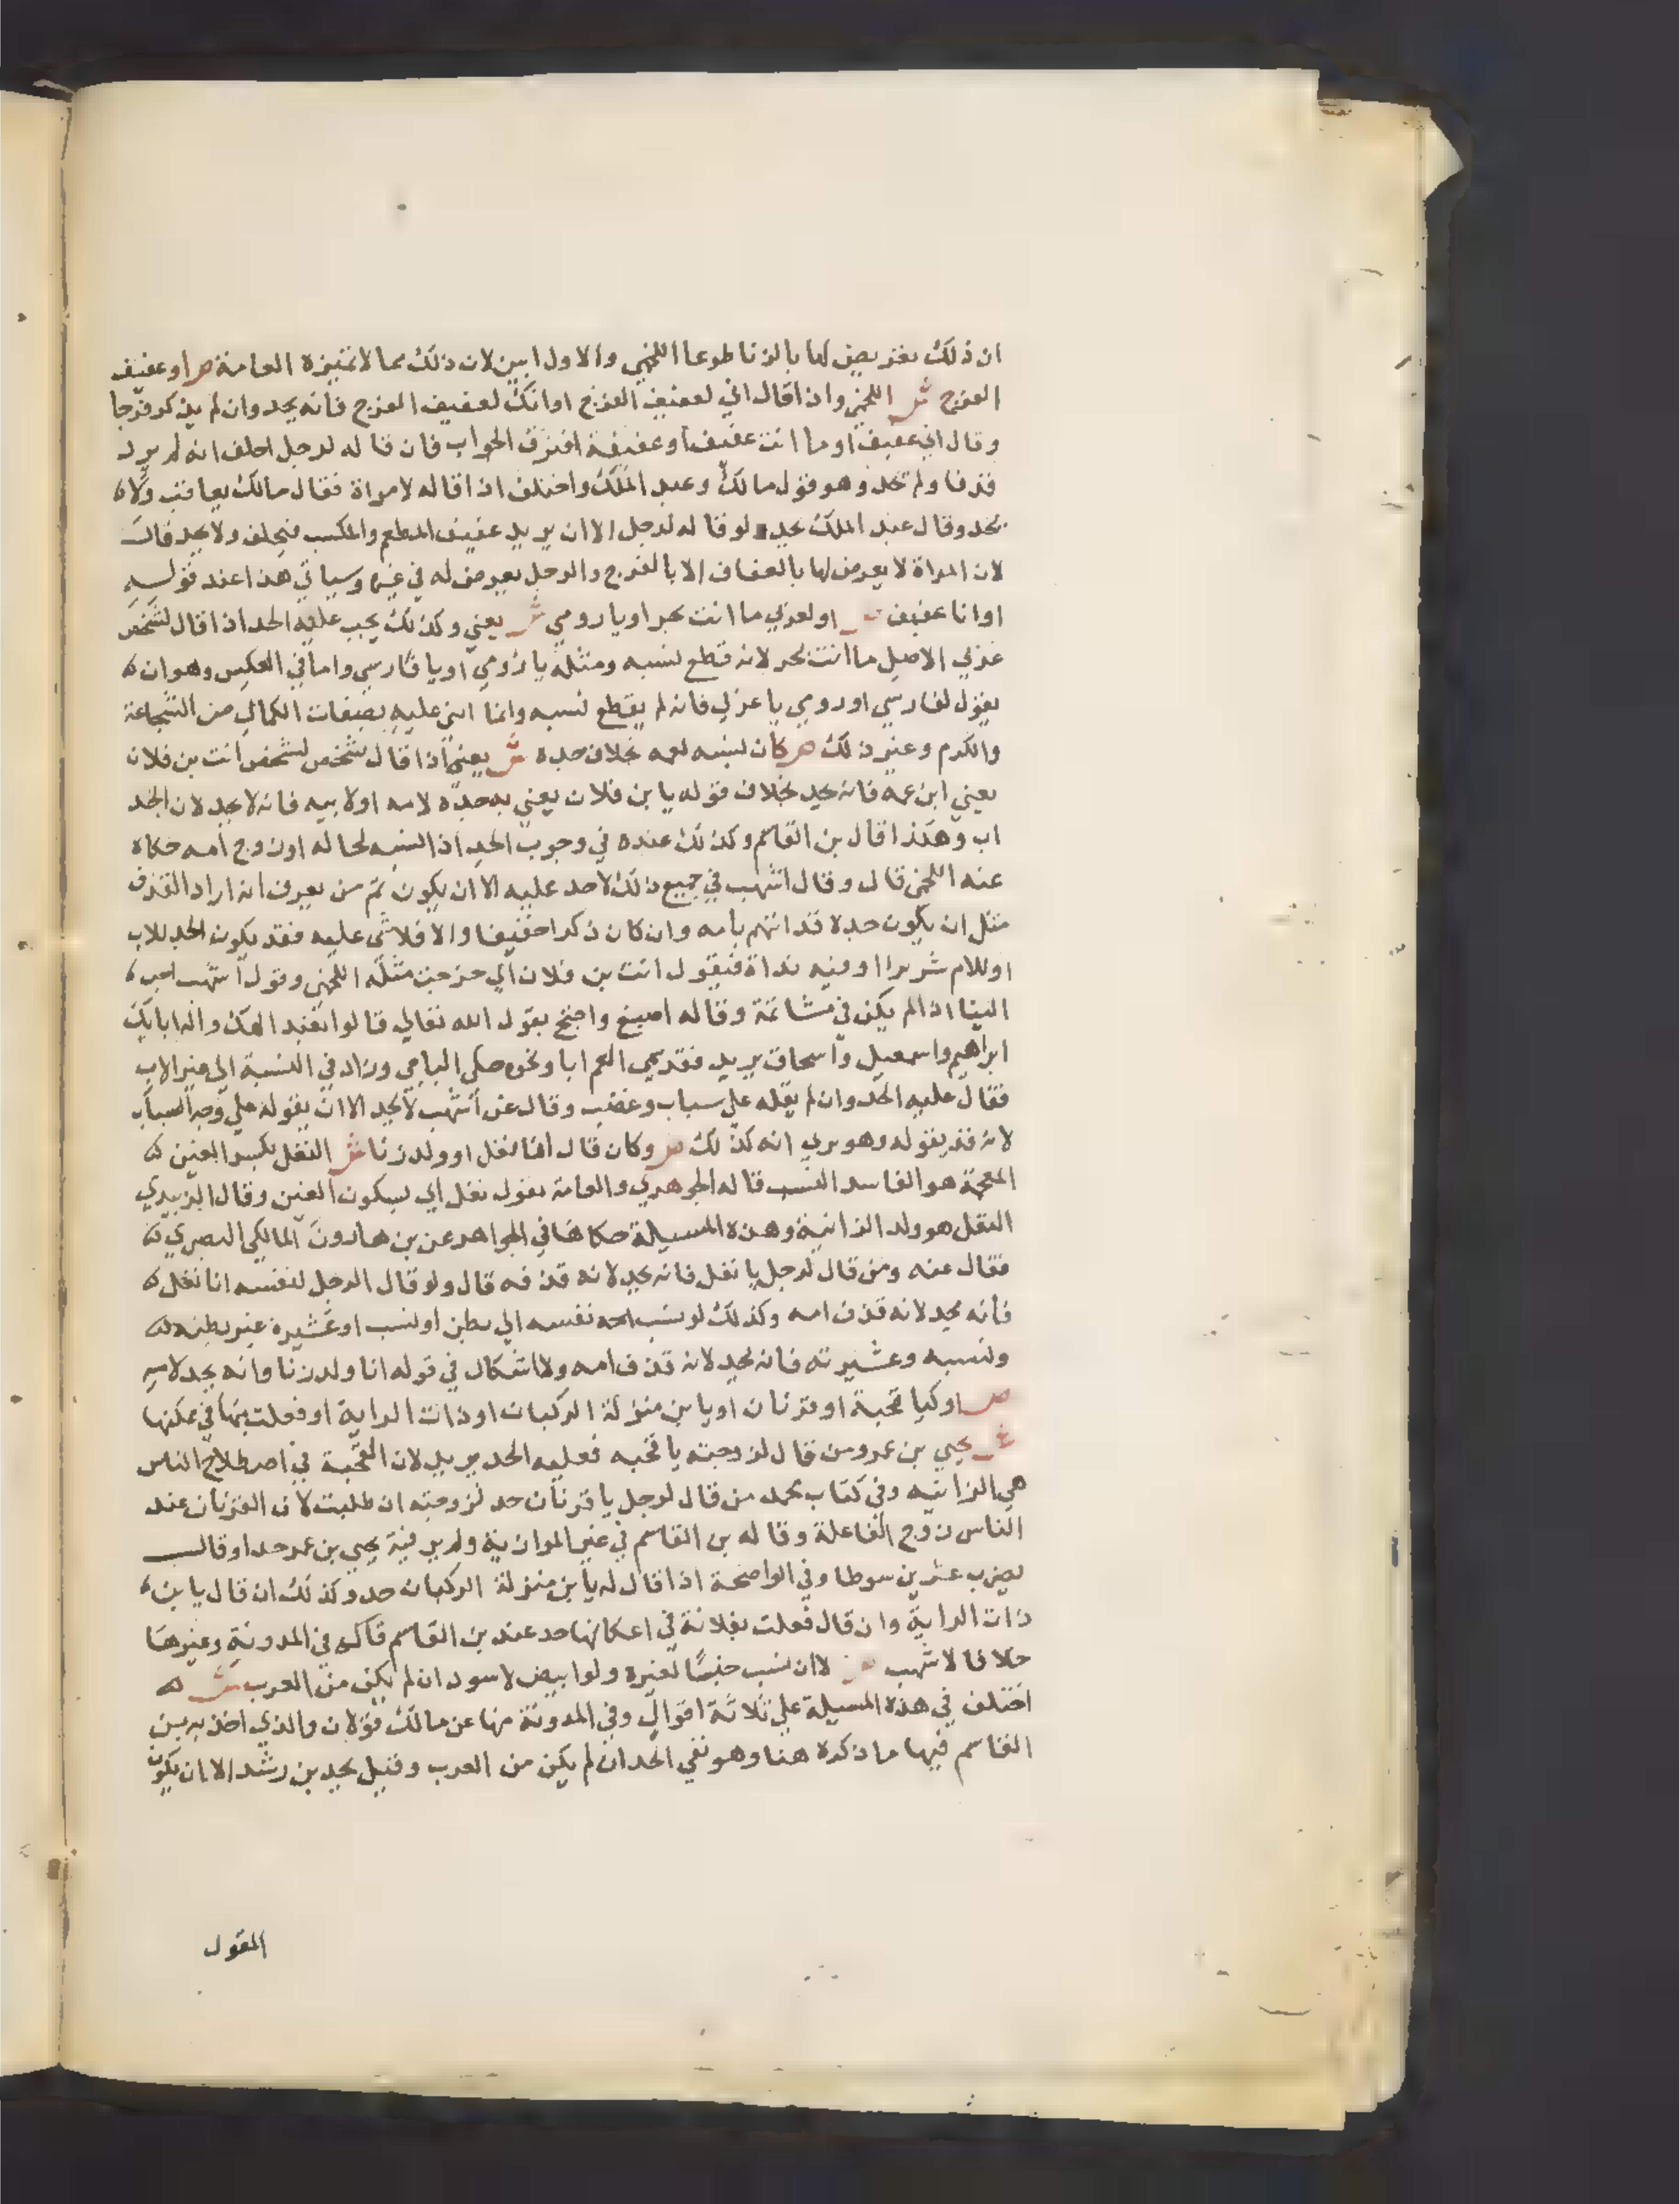 ان ذلك تعريض لها بالزنا طوعا اللخمي والاول ابين لان ذلك مما لا تميزه العامة ص او عفيف
الفرج ش اللخمي واذا قال اني لعفيف الفرج او انك لعفيف الفرج فانه يحد وان لم يذكر فرجا
وقال اني عفيف او ما انت عفيف او عفيفة افترق الجواب فان قاله لرجل احلف انه لم يرد
قذفا ولم يحد وهو قول مالك وعبد الملك واختلف اذا قاله لامراة فقال مالك يعاقب ولا
يحد وقال عبد الملك يحد لو قاله لرجل الا ان يريد عفيف المطعم والمكسب فيحلف ولا يحد قال
لان المراة لا يعرض لها بالعفاف الا بالفرج والرجل يعرض له في غيره وسياتي هذا عند قوله
او انا عفيف او لعربي ما انت بحر او يا رومي ش يعني وكذلك يجب عليه الحد اذا قال لشخص
عربي الاصل ما انت بحر لانه قطع نسبه ومثله يا رومي او يا فارسي واما في العكس وهو ان
يقول لفارسي او رومي يا عربي فانه لم يقطع نسبه وانما اثني عليه بصفات الكمال من الشجاعة
والكرم وغير ذلك ص كان نسبه لعمه بخلاف جده ش يعني اذا قال شخص لشخص انت بن فلان
يعني ابن عمه فانه يحد بخلاف قوله يا بن فلان يعني به جده لامه او لابيه فانه لا يحد لان الجد
اب وهكذا قال بن القاسم وكذلك عنده في وجوب الحد اذا نسبه لخاله او زوج امه حكاه
عنه اللخمي قال وقال اشهب في جميع ذلك لا حد عليه الا ان يكون ثم من يعرف انه اراد القذف
مثل ان يكون جده قد اتهم بامه وان كان ذكرا خفيفا والا فلا شي عليه فقد يكون الجد للاب
او للام شريرا او فيه فيقول انت بن فلان اي خرجت مثله اللخمي وقول اشهب احب
الينا اذا لم يكن في مشاتمة وقاله اصبغ واحتج بقول الله تعالي قالوا نعبد الهك واله ابايك
ابراهيم واسمعيل واسحاق يريد فقد سمي العم ابا ونحوه حكي الباجي وزاد في النسبة الي غير الاب
فقال عليه الحد وان لم يقله علي سباب وغضب وقال عن اشهب لا يحد الا ان يقوله علي وجه السباب
لانه قد يقوله وهو يري انه كذلك ص وكان قال انا نغل او ولد زنا ش النغل بكسر الغين
المعجمة هو الفاسد النسب قاله الجوهري والعامة تقول نغل اي بسكون الغين وقال الزبيدي
النغل هو ولد الزانية وهذه المسيلة حكاها في الجواهر عن بن هارون المالكي البصري
فقال عنه ومن قال لرجل يا نغل فانه يحد لانه قذفه قال ولو قال الرجل لنفسه انا نغل
فانه يحد لانه قذف امه وكذلك لو نسب نفسه الي بطن او نسب او عشيرة غير بطنه
ونسبه وعشيرته فانه يحد لانه قذف امه ولا اشكال في قوله انا ولد زنا وانه يحد لامه
ص او كيا قحبة او قرنان او يا بن منزلة الركبان او ذات الراية او فعلت بها في عكنها
ش يحيي بن عمر ومن قال لزوجته يا قحبه فعليه الحد يريد لان القحبة في اصطلاح الناس
هي الزانيه وفي كتاب محمد من قال لرجل يا قرنان حد لزوجته ان طلبت لان القرنان عند
الناس زوج الفاعلة وقاله بن القاسم في غير الموازية ولم ير فيه يحيي بن عمر حدا وقال
يضرب عشرين سوطا وفي الواضحة اذا قال له يا بن منزلة الركبان حد وكذلك ان قال يا بن
ذات الراية وان قال فعلت بفلانة في اعكانها حد عند بن القاسم قاله في المدونة وغيرها
خلافا لاشهب لا ان نسب جنسا لغيره ولو ابيض لاسود ان لم يكن من العرب ش
اختلف في هذه المسيلة علي ثلاثة اقوال وفي المدونة منها عن مالك قولان والذي اخذ به بن
القاسم فيها ما ذكره هنا وهو نفي الحد ان لم يكن من العرب وقيل يحد بن رشد الا ان يكون
المقول